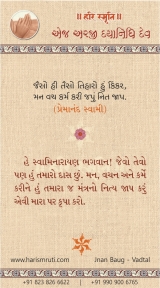 ॥ હરિ સ્મૃતિ ॥
એજ અરજી દયાનિધિ દેવ
જૈસો હી તૈસો તિહારો હું કિંકર,
મન વચ કર્મ કરી જપું નિત જાપ.
(પ્રેમાનંદ સ્વામી)
હે સ્વામિનારાયણ ભગવાન! જેવો તેવો
પણ હું તમારો દાસ છું. મન, વચન અને કર્મે
કરીને હું તમારા જ મંત્રનો નિત્ય જાપ કરું
એવી મારા પર કૃપા કરો.
www.harismruti.com
Jnan Baug - Vadtal
+91 823 826 6622
+91 990 900 6765